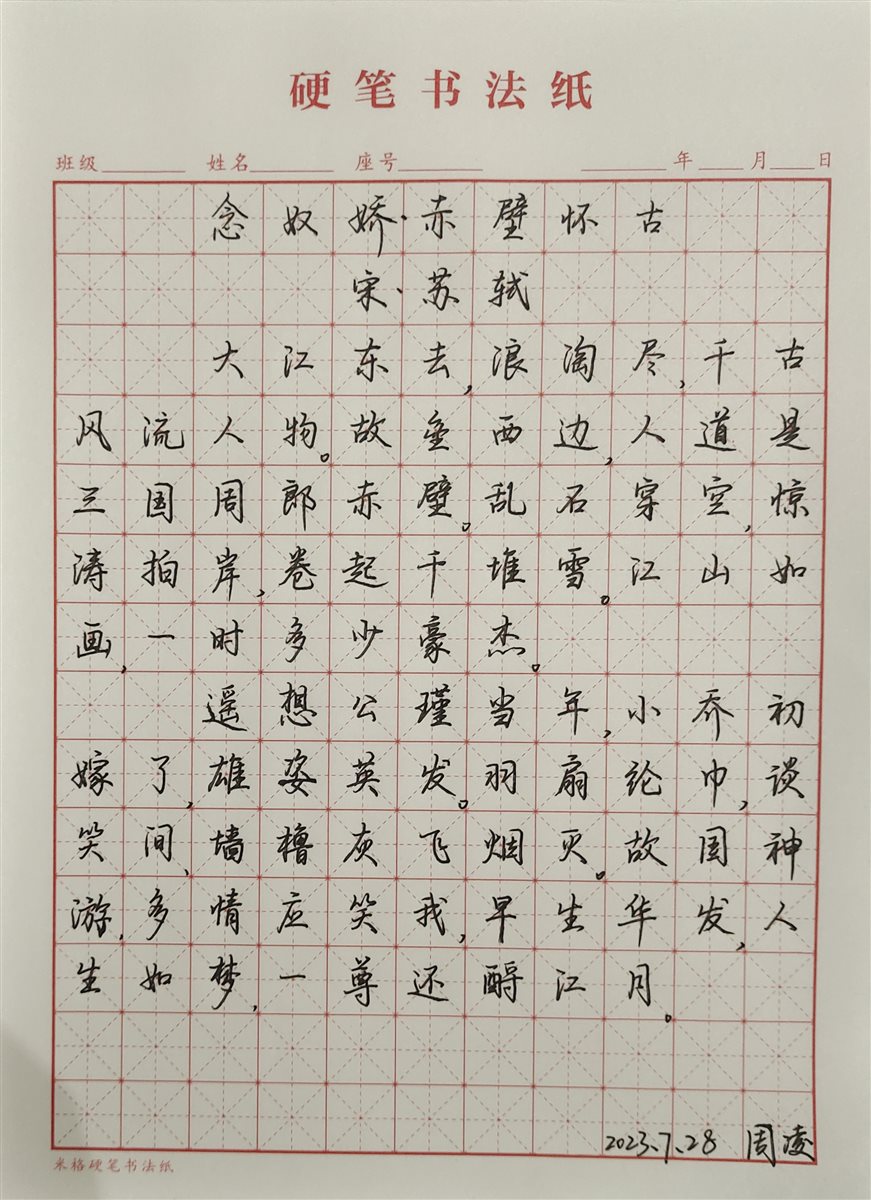 硬笔书法纸
班级 姓名 座号 年 月 日
念奴娇·赤壁怀古
宋·苏轼
大江东去,浪淘尽,千古
风流人物。故垒西边,人道是
三国周郎赤壁。乱石穿空,惊
涛拍岸,卷起千堆雪。江山如
画,一时多少豪杰。
遥想公瑾当年,小乔初
嫁了,雄姿英发。羽扇纶巾,谈
笑间、墙橹灰飞烟灭。故国神
游,多情应笑我,早生华发,人
生如梦,一尊还酹江月。
2023.7.28 周凌
米格硬笔书法纸